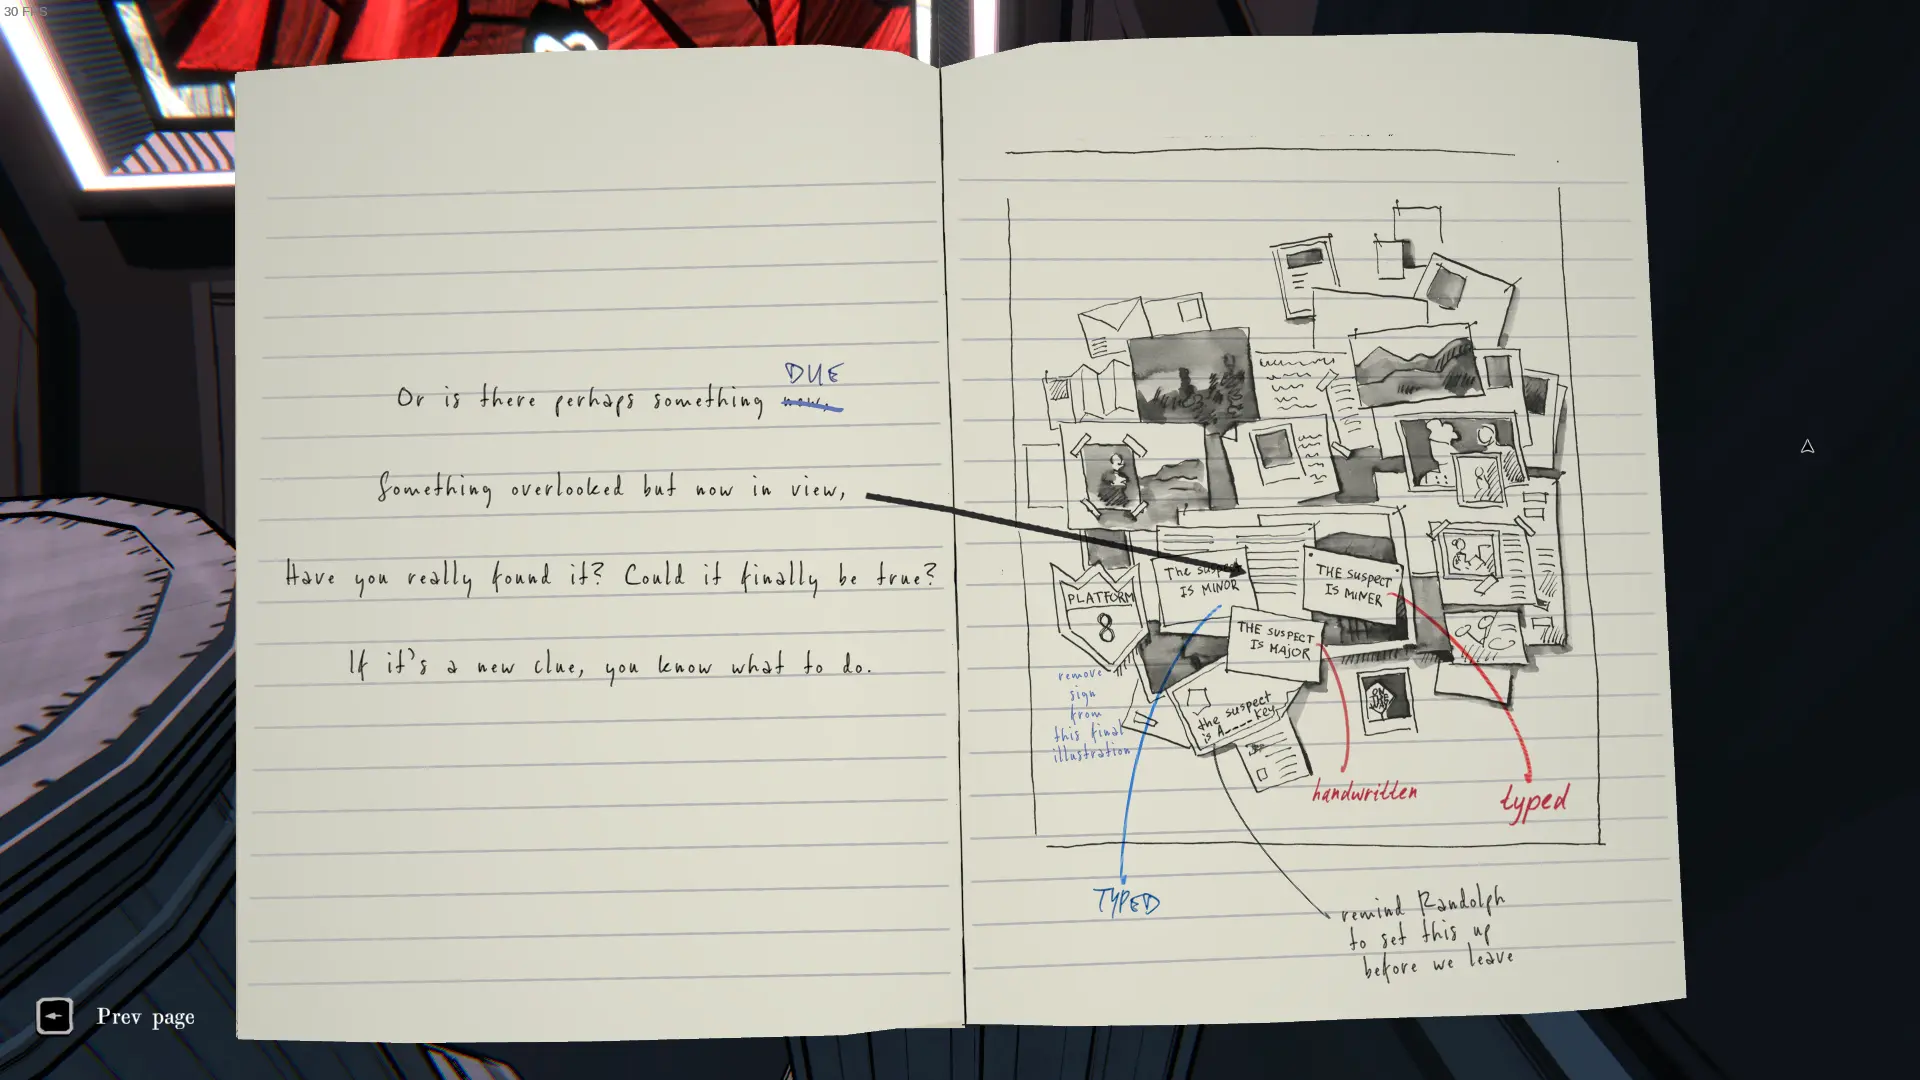 30 FPS
DUE
Or is there perhaps something now.
Something overlooked but now in view,
Have you really found it? Could it finally be true?
If it's a new clue, you know what to do.
The suspect
IS MINOR
THE SUSPECT
IS MINER
PLATFORM
8
THE SUSPECT
IS MAJOR
remove
sign
from
this final
illustration
the suspect
is A____key
ON
THE
WAY
handwritten
typed
TYPED
remind Randolph
to set this up
before we leave
Prev page